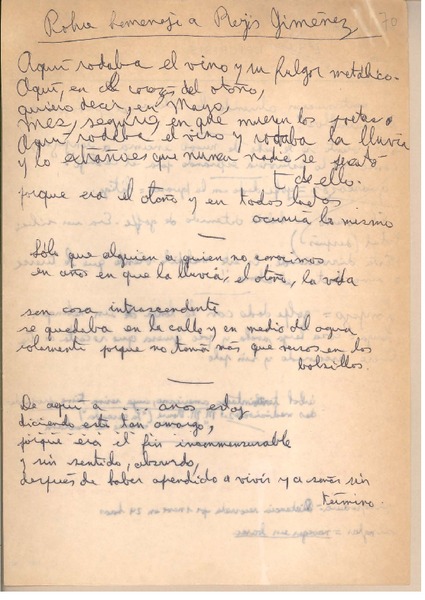 Pobre homenaje a Rojas Jiménez 70
Aquí rodaba el vino y su fulgor metálico.
Aquí, en el corazón del otoño,
quiero decir, en Mayo,
mes, seguro, en que mueren los poetas
Aquí rodaba el vino y rodaba la lluvia
y lo extraño es que nunca nadie se
de ello.
porque era el otoño y en todos lados
ocurría lo mismo
Sólo que alguien a quien no conocimos
en años en que la lluvia, el otoño, la vida
son cosa intrascendente
se quedaba en la calle y en medio del agua
solamente porque no tenía más que versos en los
bolsillos.
De aquí a años estoy
diciendo esto tan amargo,
porque era el fin inconmensurable
y sin sentido, absurdo,
después de haber aprendido a vivir y a soñar sin
término.